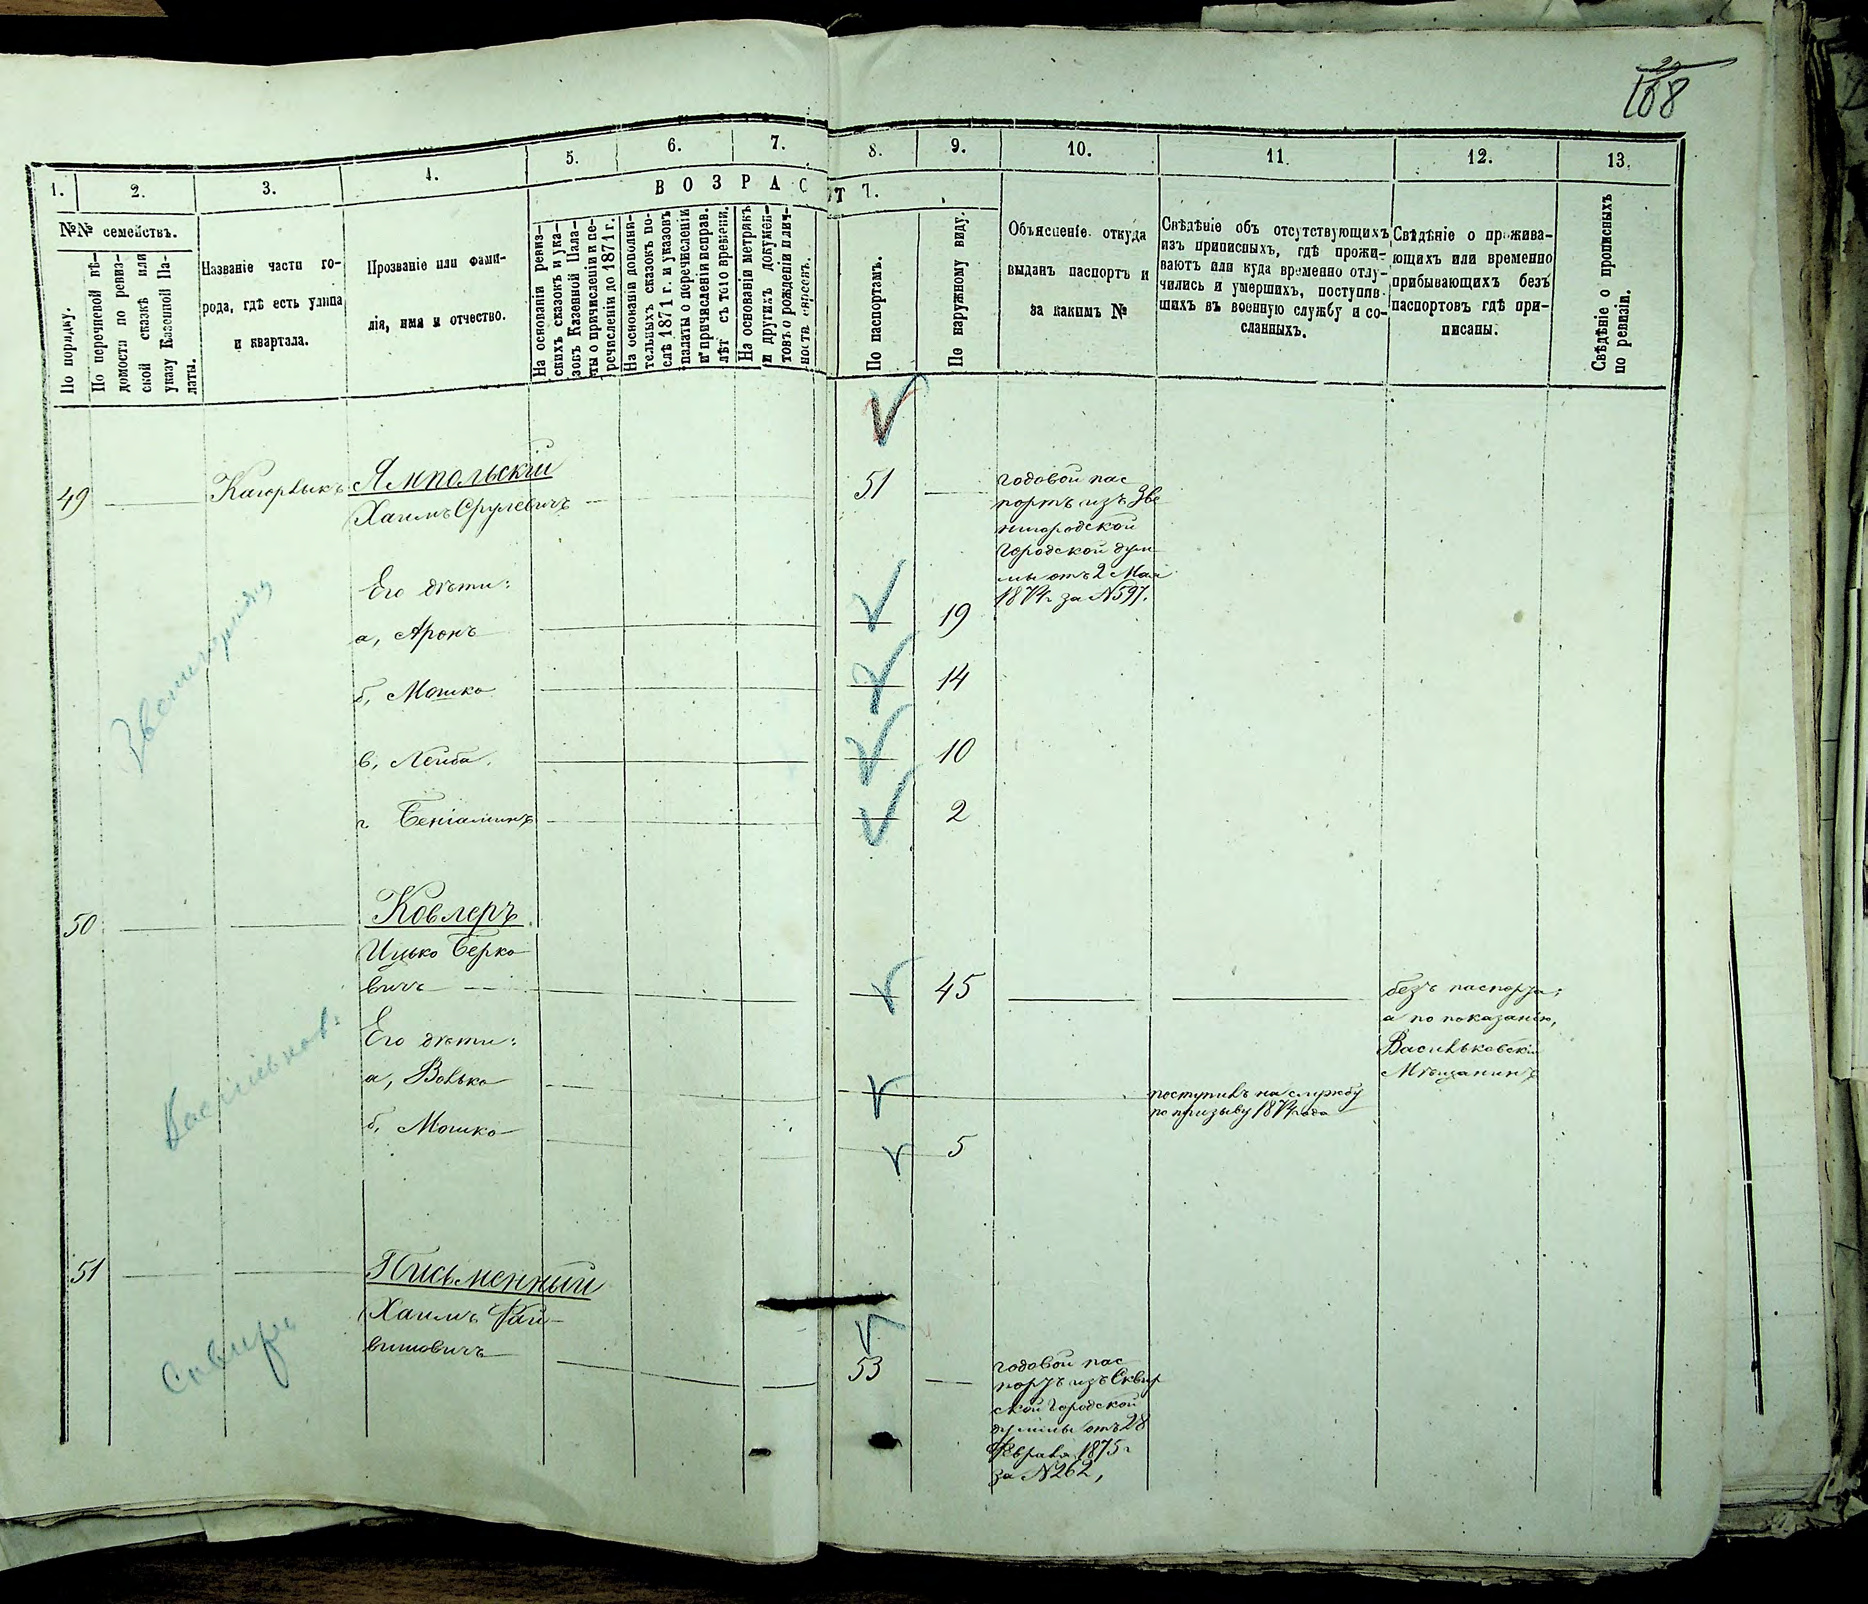 168
1.
2.
3.
4.
5.
6.
7.
8.
9.
10.
11.
12.
13.
ВОЗРАСТ
№№ семействъ.
По порядку.
По перечневой вѣ-
домости по ревиз-
ской сказкѣ или
указу Казенной Па-
латы.
Названіе части го-
рода, гдѣ есть улица
и кварталъ.
Прозваніе или фами-
лія, имя и отчество.
На основаніи ревиз-
скихъ сказокъ и ука-
зовъ Казенной Пала-
ты о причисленіи и пе-
речисленіи до 1871 г.
На основаніи дополни-
тельныхъ сказокъ по-
слѣ 1871 г. и указовъ
палаты о перечисленіи
и причисленіи исправ.
лѣт съ того времени.
На основаніи метрикъ
и другихъ докумен-
товъ о рожденіи и лич-
ности евреевъ.
По паспортамъ.
По наружному виду.
Объясненіе откуда
выданъ паспортъ и
за какимъ №
Свѣдѣніе объ отсутствующихъ
изъ приписныхъ, гдѣ прожи-
ваютъ или куда временно отлу-
чились и умершихъ, поступив-
шихъ въ военную службу и со-
сланныхъ.
Свѣдѣніе о прожива-
ющихъ или временно
прибывающихъ безъ
паспортовъ гдѣ при-
писаны.
Свѣдѣніе о прописныхъ
по ревизіи.
49
Кагорлыкъ
Ямпольскій
Хаимъ Срулевичъ
51
годовой пас
портъ изъ Зве
нигородской
Городской дум
мы отъ 2 Мая
1874 г за N597.
Его дѣти:
а, Аронъ
19
б, Мошко
14
в, Лейба
10
г Беніаминъ
2
50
Ковлеръ
Ицько Берко
вичъ
45
безъ паспорта;
а по показанію,
Васильковскій
Мѣщанинъ
Его дѣти:
а, Волько
поступилъ на службу
по призыву 1874 года
б, Мошко
5
51
Письменный
Хаимъ Фай-
вишовичъ
53
годовой пас
портъ изъ Сквир
ской Городской
думмы отъ 28
Февраля 1875 г
за N262,